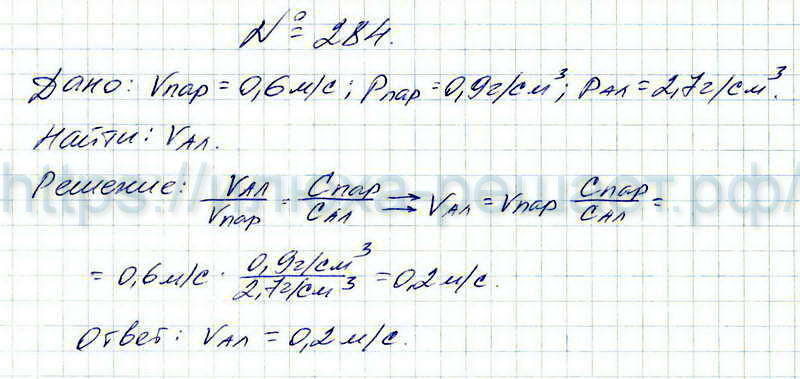 № 284.
Дано: Vпар = 0,6 м/с; Pпар = 0,9 г/см³; PАл = 2,7 г/см³.
Найти: VАл.
Решение: VАл/Vпар = Cпар/CАл ⇒ VАл = Vпар Cпар/CАл =
= 0,6 м/с · 0,9 г/см³/2,7 г/см³ = 0,2 м/с.
Ответ: VАл = 0,2 м/с.